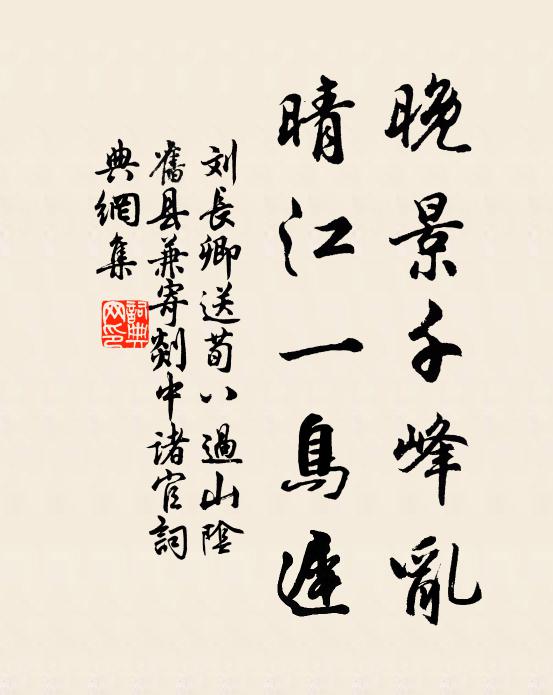 晚景千峰亂
晴江一鳥遲
刘長卿送荀八過山陰
舊县兼寄剡中诸官詞
典網集
詞典网印